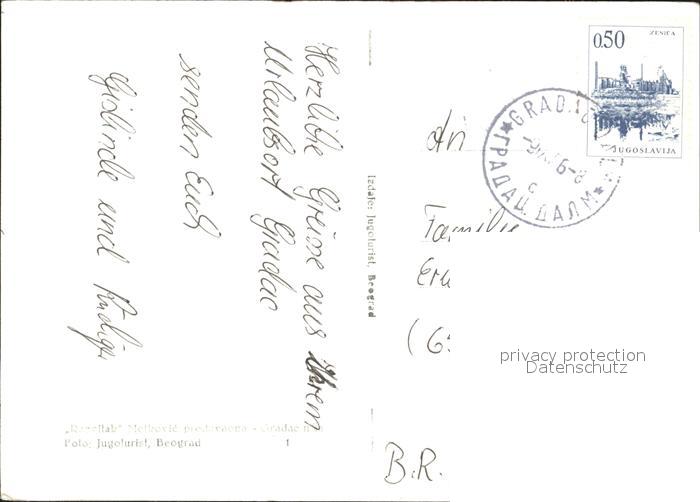 Herzliche Grüsse aus Ihrem
Urlaubsort Gradac
senden Euch
Gislinde und Rüdiger
Izdaje: Jugoturist, Beograd
"Razglab" Metković prodavaona - Gradac n/m
Foto: Jugoturist, Beograd 1
An
Familie
(G
B.R.
0.50
ZENICA
JUGOSLAVIJA
GRADAC
ГРАДАЦ ДАЛМ
privacy protection
Datenschutz